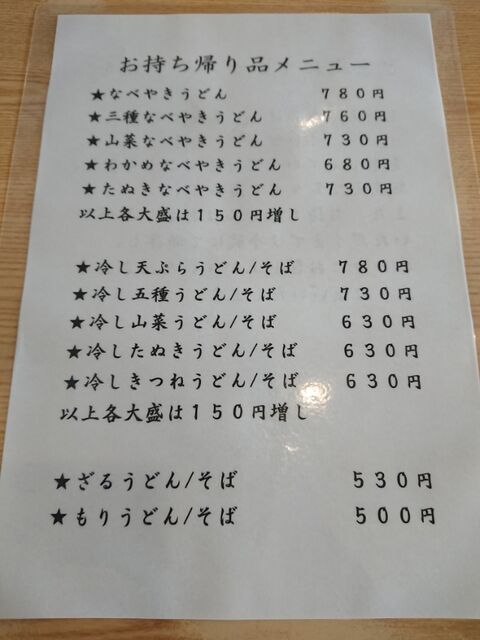 お持ち帰り品メニュー
★なべやきうどん 780円
★三種なべやきうどん 760円
★山菜なべやきうどん 730円
★わかめなべやきうどん 680円
★たぬきなべやきうどん 730円
以上各大盛は150円増し
★冷し天ぷらうどん/そば 780円
★冷し五種うどん/そば 730円
★冷し山菜うどん/そば 630円
★冷したぬきうどん/そば 630円
★冷しきつねうどん/そば 630円
以上各大盛は150円増し
★ざるうどん/そば 530円
★もりうどん/そば 500円